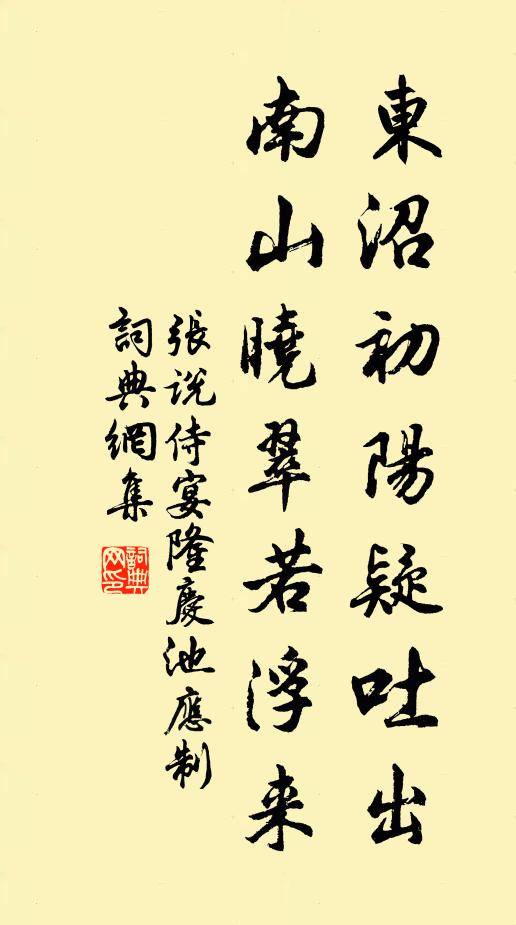 東沼初陽疑吐出
南山曉翠若浮来
張説侍宴隆慶池應制
詞典網集
詞典网印